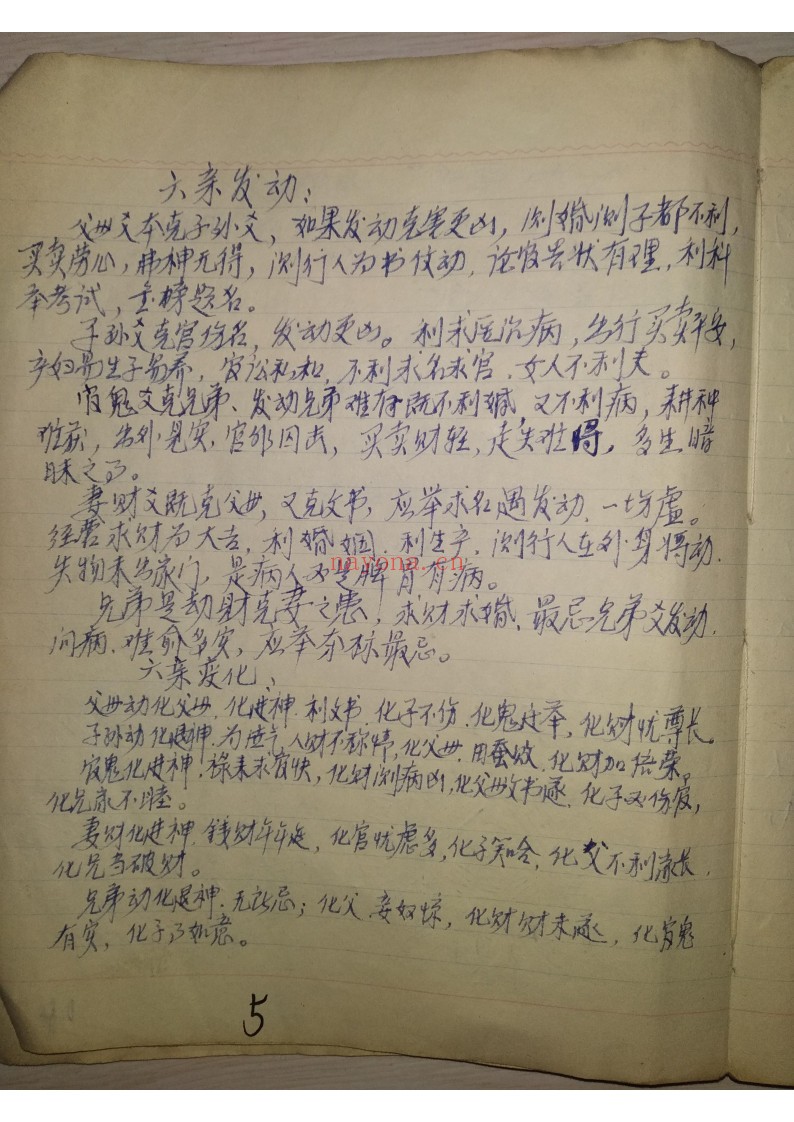 六亲发动：
父母爻本克子孙爻，如果发动克害更凶，测婚测子都不利，
买卖劳心，财神无得，测行人为书仗动，论官告状有理，利科
举考试，金榜题名。
子孙爻克官伤名，发动更凶。利求医治病，出行买卖平安，
产妇易生子易养，官讼私和，不利求名求官，女人不利夫。
官鬼爻克兄弟、发动兄弟难存既不利婚，又不利病，耕种
难获，出外见灾，官非因击，买卖财轻，走失难得，多生暗
昧之事。
妻财爻既克父母，又克文书，应举求名遇发动，一切虚。
经营求财为大吉，利婚姻，利生产，测行人在外身将动，
失物未出家门，是病人必是脾胃有病。
兄弟是劫财克妻之患，求财求婚，最忌兄弟爻发动，
问病，难愈多灾，应举夺标最忌。
nayona.cn
六亲变化：
父母动化父母，化进神，利文书，化子不伤，化鬼迁举，化财忧尊长。
子孙动化退神，为 人财不称情，化父母，用蚕败，化财加倍荣，
官鬼化进神，禄来求官快，化财测病凶，化父母文书遂，化子必伤官，
化兄家不睦。
妻财化进神，钱财年年进，化官忧虑多，化子 哈，化父不利家长，
化兄当破财。
兄弟动化退神，无所忌；化父，妾奴惊，化财财未遂，化官鬼
有灾，化子了如意。
5